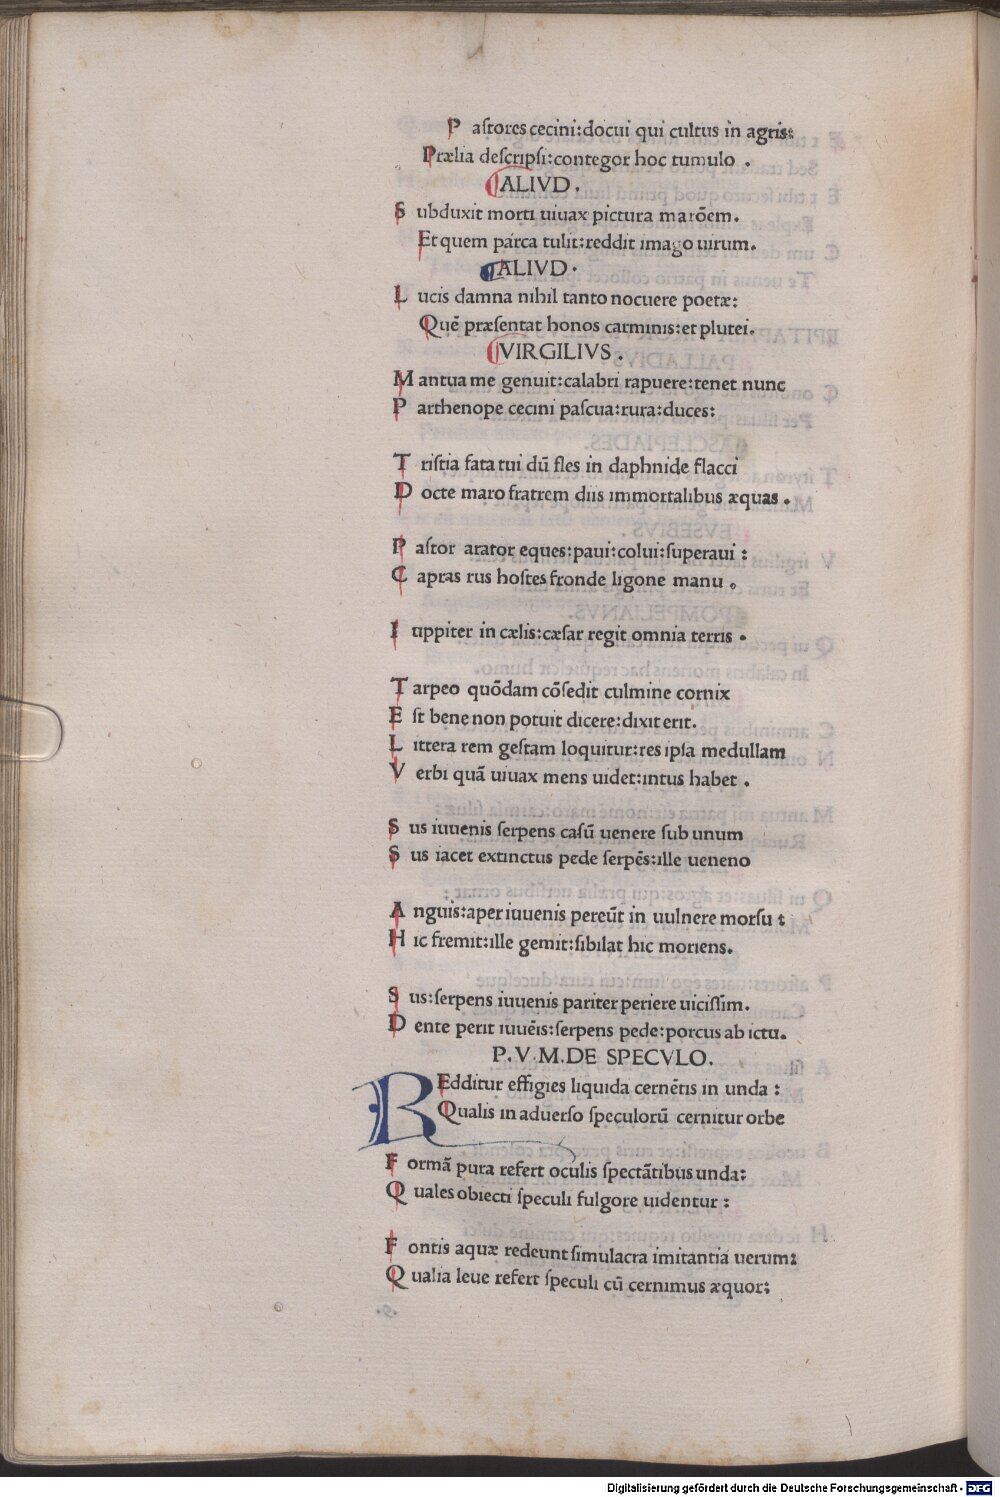 Pastores cecini:docui qui cultus in agris:
Prælia descripsi:contegor hoc tumulo .
ALIVD .
Subduxit morti uiuax pictura marōem.
Et quem parca tulit:reddit imago uirum.
ALIVD .
Lucis damna nihil tanto nocuere poetæ:
Quē præsentat honos carminis:et plutei.
VIRGILIVS .
Mantua me genuit:calabri rapuere:tenet nunc
Parthenope cecini pascua:rura:duces:
Tristia fata tui dū fles in daphnide flacci
Docte maro fratrem diis immortalibus æquas .
Pastor arator eques:paui:colui:superaui :
Capras rus hostes fronde ligone manu .
Iuppiter in cælis:cæsar regit omnia terris .
Tarpeo quōdam cōsedit culmine cornix
Est bene non potuit dicere:dixit erit.
Littera rem gestam loquitur:res ipsa medullam
Verbi quā uiuax mens uidet:intus habet .
Sus iuuenis serpens casū uenere sub unum
Sus iacet extinctus pede serpēs:ille ueneno
Anguis:aper iuuenis pereūt in uulnere morsu :
Hic fremit:ille gemit:sibilat hic moriens.
Sus:serpens iuuenis pariter periere uicissim.
Dente perit iuuēis:serpens pede:porcus ab ictu.
P.V.M.DE SPECVLO.
Redditur effigies liquida cernētis in unda :
Qualis in aduerso speculorū cernitur orbe
Formā pura refert oculis spectātibus unda:
Quales obiecti speculi fulgore uidentur :
Fontis aquæ redeunt simulacra imitantia uerum:
Qualia leue refert speculi cū cernimus æquor:
Digitalisierung gefördert durch die Deutsche Forschungsgemeinschaft - DFG